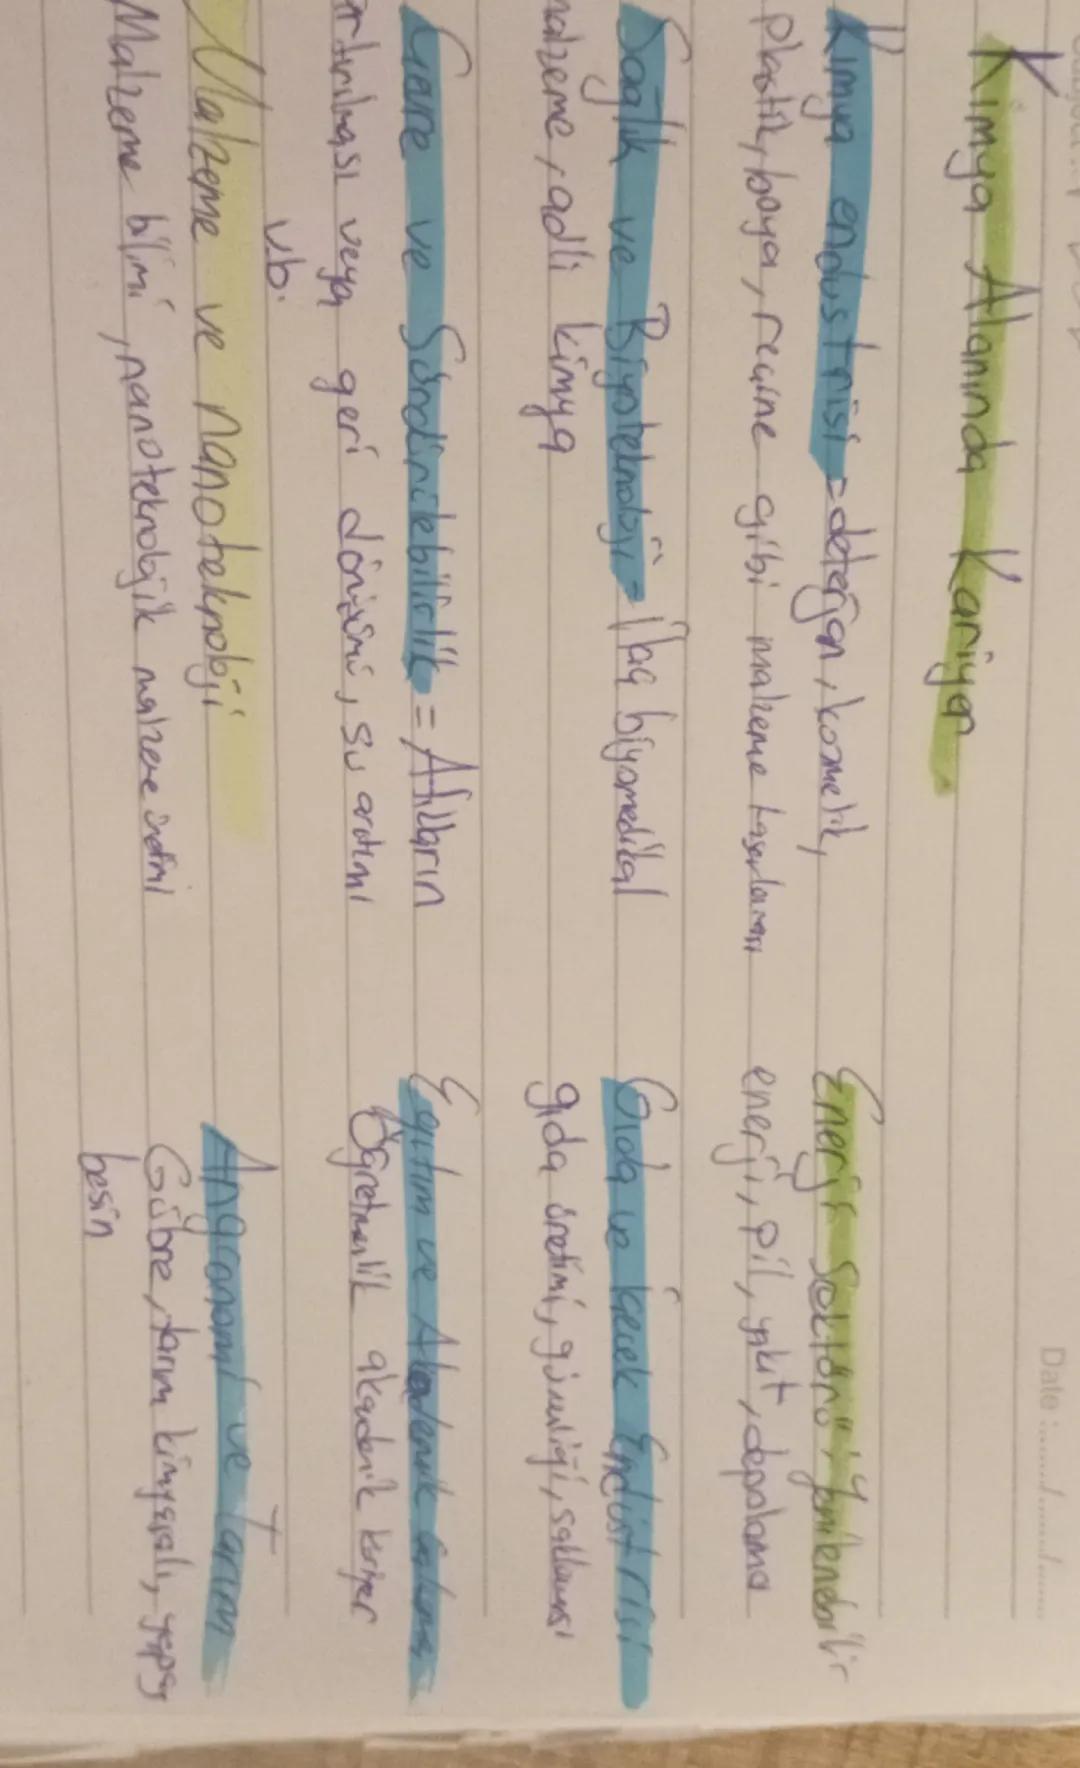 Date :......./......./.......
Kimya Alanında Kariyer
Kimya endüstrisi = deterjan, kozmetik,
plastik, boya, reçine gibi malzeme tasarlaması
Sağlık ve Biyoteknoloji = İlaç biyomedikal
malzeme, adli kimya
Çevre ve Sürdürülebilirlik = Atıkların
arıtılması veya geri dönüşümü, su arıtımı
vb.
Malzeme ve nanoteknoloji
Malzeme bilimi, nanoteknolojik malzeme üretimi
Enerji Sektörü : Yenilenebilir
enerji, pil, yakıt, depolama
Gıda ve İçecek Endüstrisi
gıda üretimi, güvenliği, saklanması
Eğitim ve Akademik çalışma
Öğretmenlik akademik kariyer
Angronomi ve Tarım
Gübre, tarım kimyasalı, yapay
besin